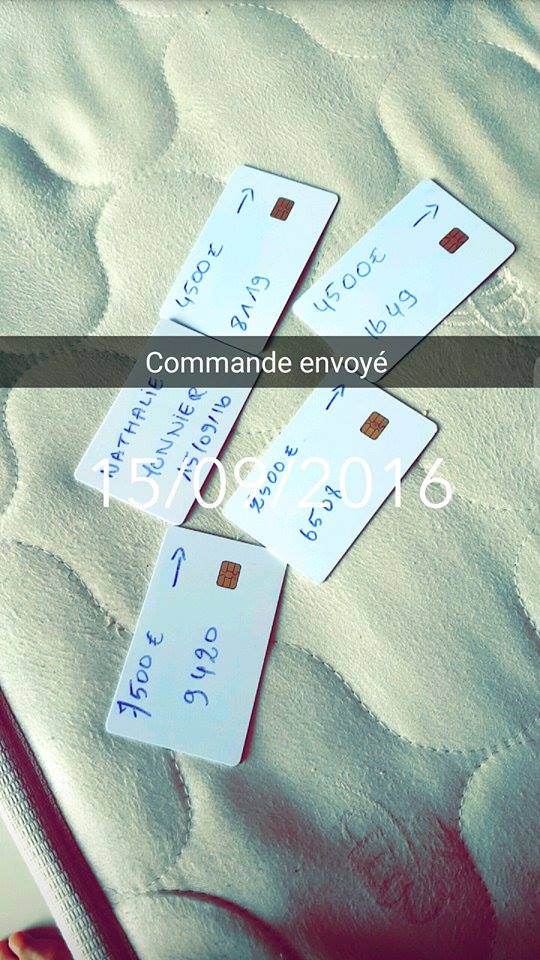 4500€
8119
4500€
1649
Commande envoyé
NATHALIE
15/09/16
2500€
15/09/2016
7500€
9420